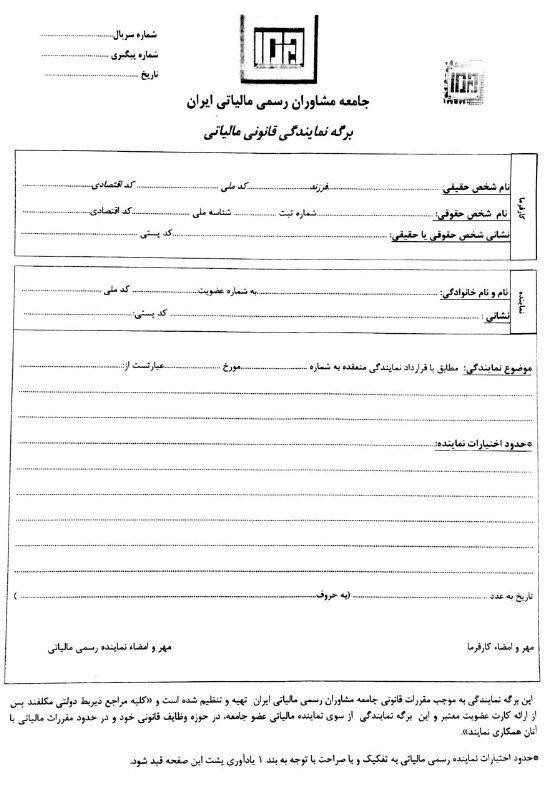 شماره سریال
شماره پیگیری
تاریخ
جامعه مشاوران رسمی مالیاتی ایران
برگه نمایندگی قانونی مالیاتی
کارفرما
نام شخص حقیقی: فرزند کد ملی کد اقتصادی
نام شخص حقوقی: شماره ثبت شناسه ملی کد اقتصادی
نشانی شخص حقوقی یا حقیقی: کد پستی
نماینده
نام و نام خانوادگی: به شماره عضویت کد ملی
نشانی: کد پستی:
موضوع نمایندگی: مطابق با قرارداد نمایندگی منعقده به شماره مورخ عبارتست از:
*حدود اختیارات نماینده:
تاریخ به عدد (به حروف )
مهر و امضاء کارفرما مهر و امضاء نماینده رسمی مالیاتی
این برگه نمایندگی به موجب مقررات قانونی جامعه مشاوران رسمی مالیاتی ایران تهیه و تنظیم شده است و «کلیه مراجع ذیربط دولتی مکلفند پس
از ارائه کارت عضویت معتبر و این برگه نمایندگی از سوی نماینده مالیاتی عضو جامعه، در حوزه وظایف قانونی خود و در حدود مقررات مالیاتی با
آنان همکاری نمایند».
*حدود اختیارات نماینده رسمی مالیاتی به تفکیک و با صراحت با توجه به بند ۱ یادآوری پشت این صفحه قید شود.